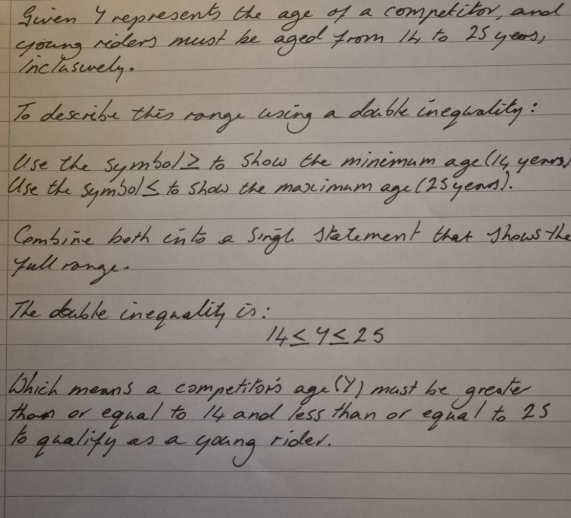 Given Y represents the age of a competitor, and
young riders must be aged from 14 to 25 years,
inclusively.
To describe this range using a double inequality:
Use the symbol ≥ to show the minimum age (14 years)
Use the symbol ≤ to show the maximum age (25 years).
Combine both into a single statement that shows the
full range.
The double inequality is:
14 ≤ Y ≤ 25
Which means a competitor's age (Y) must be greater
than or equal to 14 and less than or equal to 25
to qualify as a young rider.